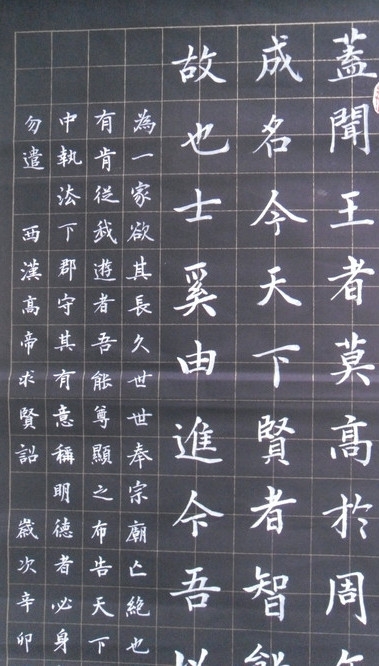 蓋聞王者莫高於周
成名今天下賢者智能
故也士奚由進今吾以
為一家欲其長久世世奉宗廟亡絕也
有肯從我遊者吾能尊顯之布告天下
中執法下郡守其有意稱明德者必身
勿遣 西漢高帝求賢詔 歲次辛卯